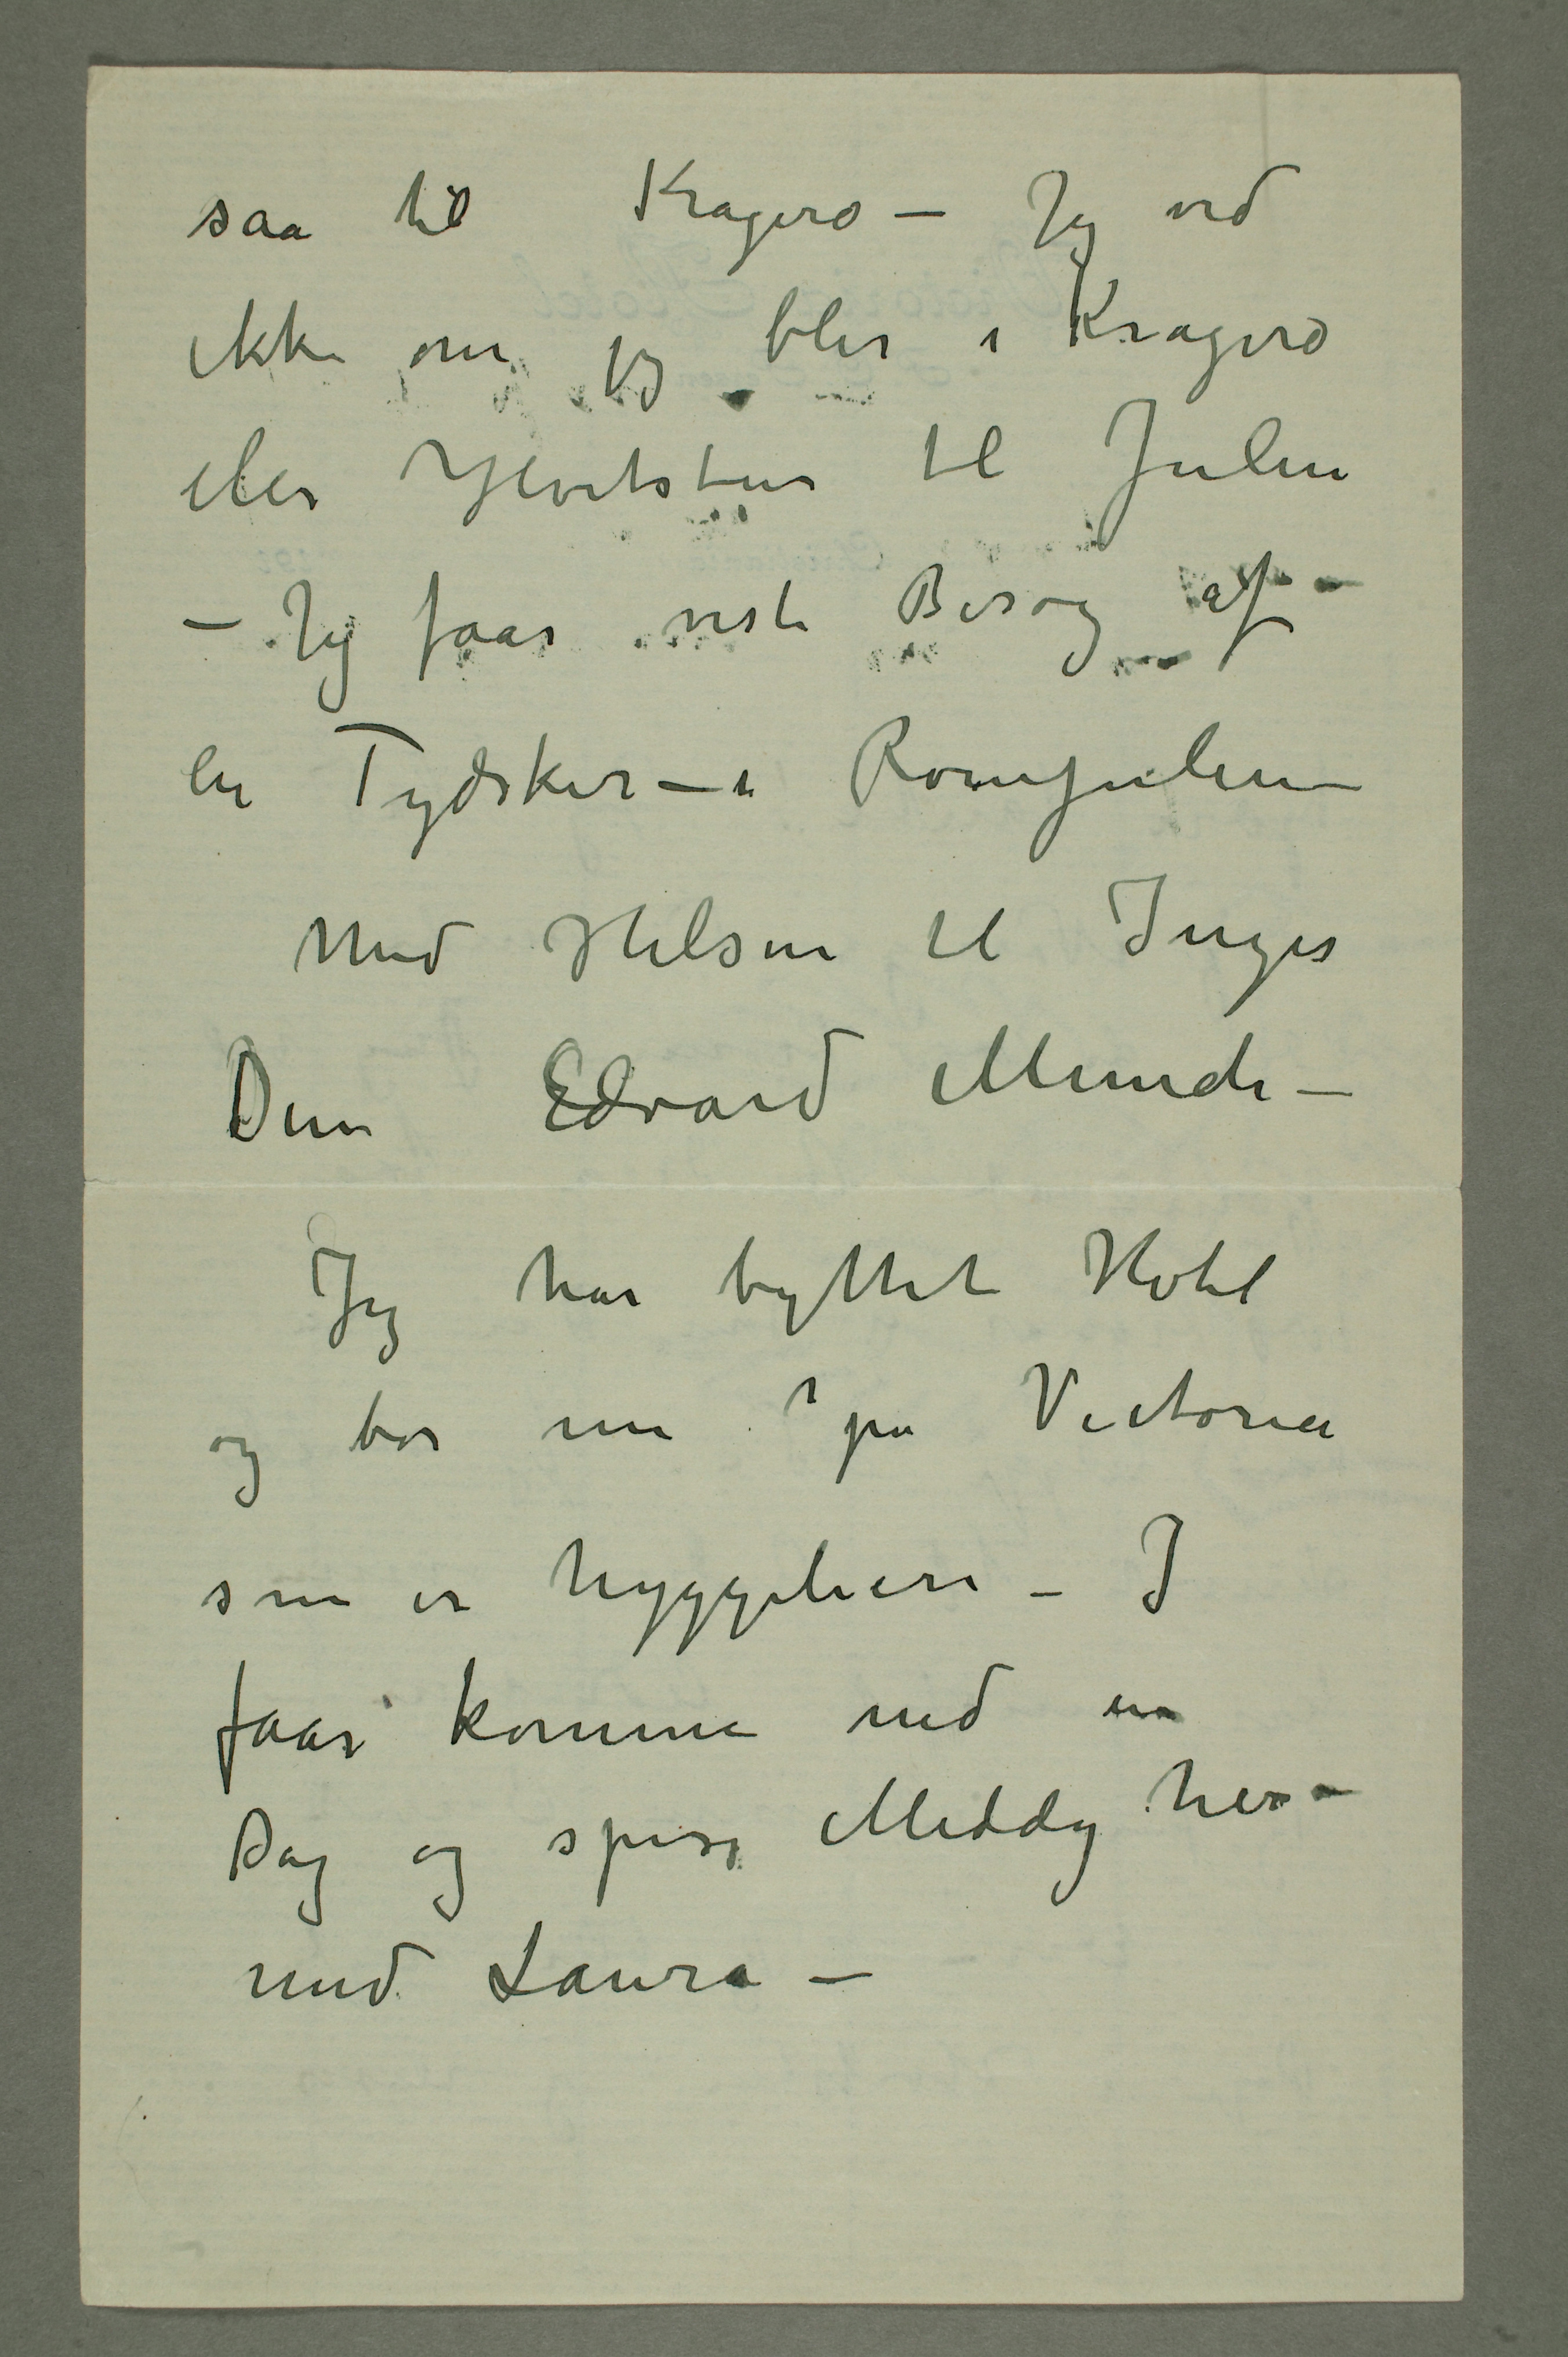 saa til Kragerø – Jeg ved
ikke om jeg blir i Kragerø
eller Hvitsten til Julen
– Jeg faar vist Besøg af
en Tydsker – i Romjulen
Med Hilsen til Inger
Din Edvard Munch –
Jeg har byttet Hotel
og bor nu på Victoria
som er hyggeliere – I
faar komme ned en
Dag og spise Middag her –
med Laura –